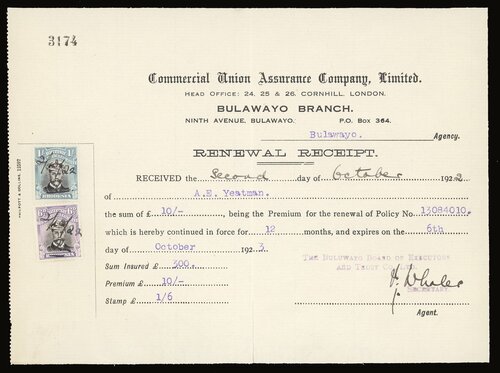 3174
Commercial Union Assurance Company, Limited.
HEAD OFFICE: 24, 25 & 26, CORNHILL, LONDON.
BULAWAYO BRANCH.
NINTH AVENUE, BULAWAYO. P.O. Box 364.
Bulawayo. Agency.
RENEWAL RECEIPT.
RECEIVED the Second day of October 1922
of A.E. Yeatman.
the sum of £ 10/- , being the Premium for the renewal of Policy No. 13084010.
which is hereby continued in force for 12 months, and expires on the 6th
day of October 1923.
Sum Insured £ 300.
Premium £ 10/-
Stamp £ 1/6
THE BULUWAYO BOARD OF EXECUTORS
AND TRUST CO. LTD.
SECRETARY.
Agent.
1/-
RHODESIA
6d